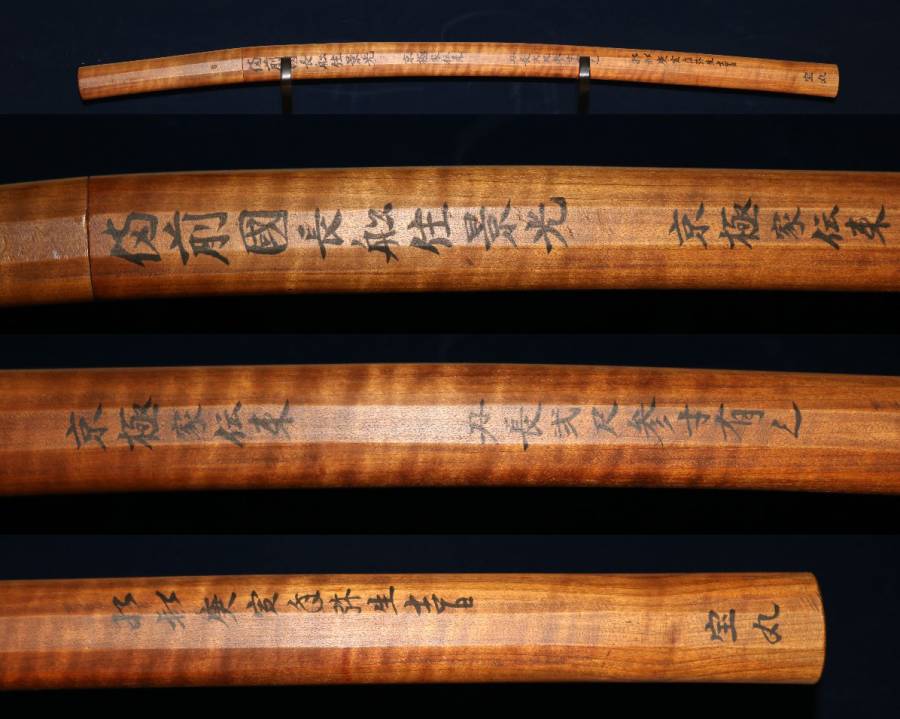 備前國長船住景光 京極家伝来
京極家伝来 刃長弐尺参寸有之
昭和庚寅 弥生